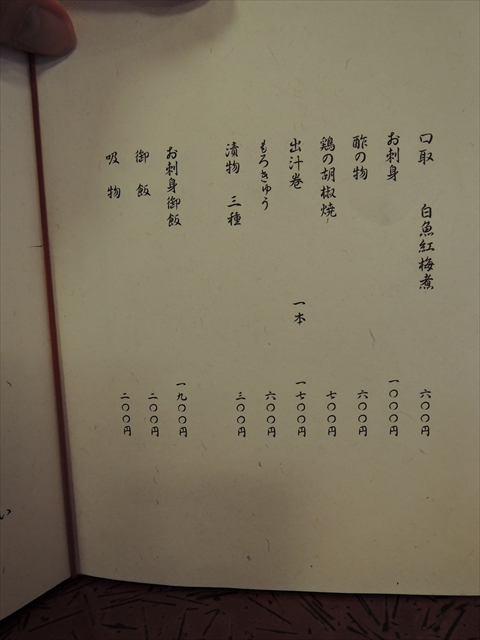 口取 白魚紅梅煮 六〇〇円
お刺身 一〇〇〇円
酢の物 六〇〇円
鶏の胡椒焼 七〇〇円
出汁巻 一本 一七〇〇円
もろきゅう 六〇〇円
漬物 三種 三〇〇円
お刺身御飯 一九〇〇円
御飯 二〇〇円
吸物 二〇〇円
い